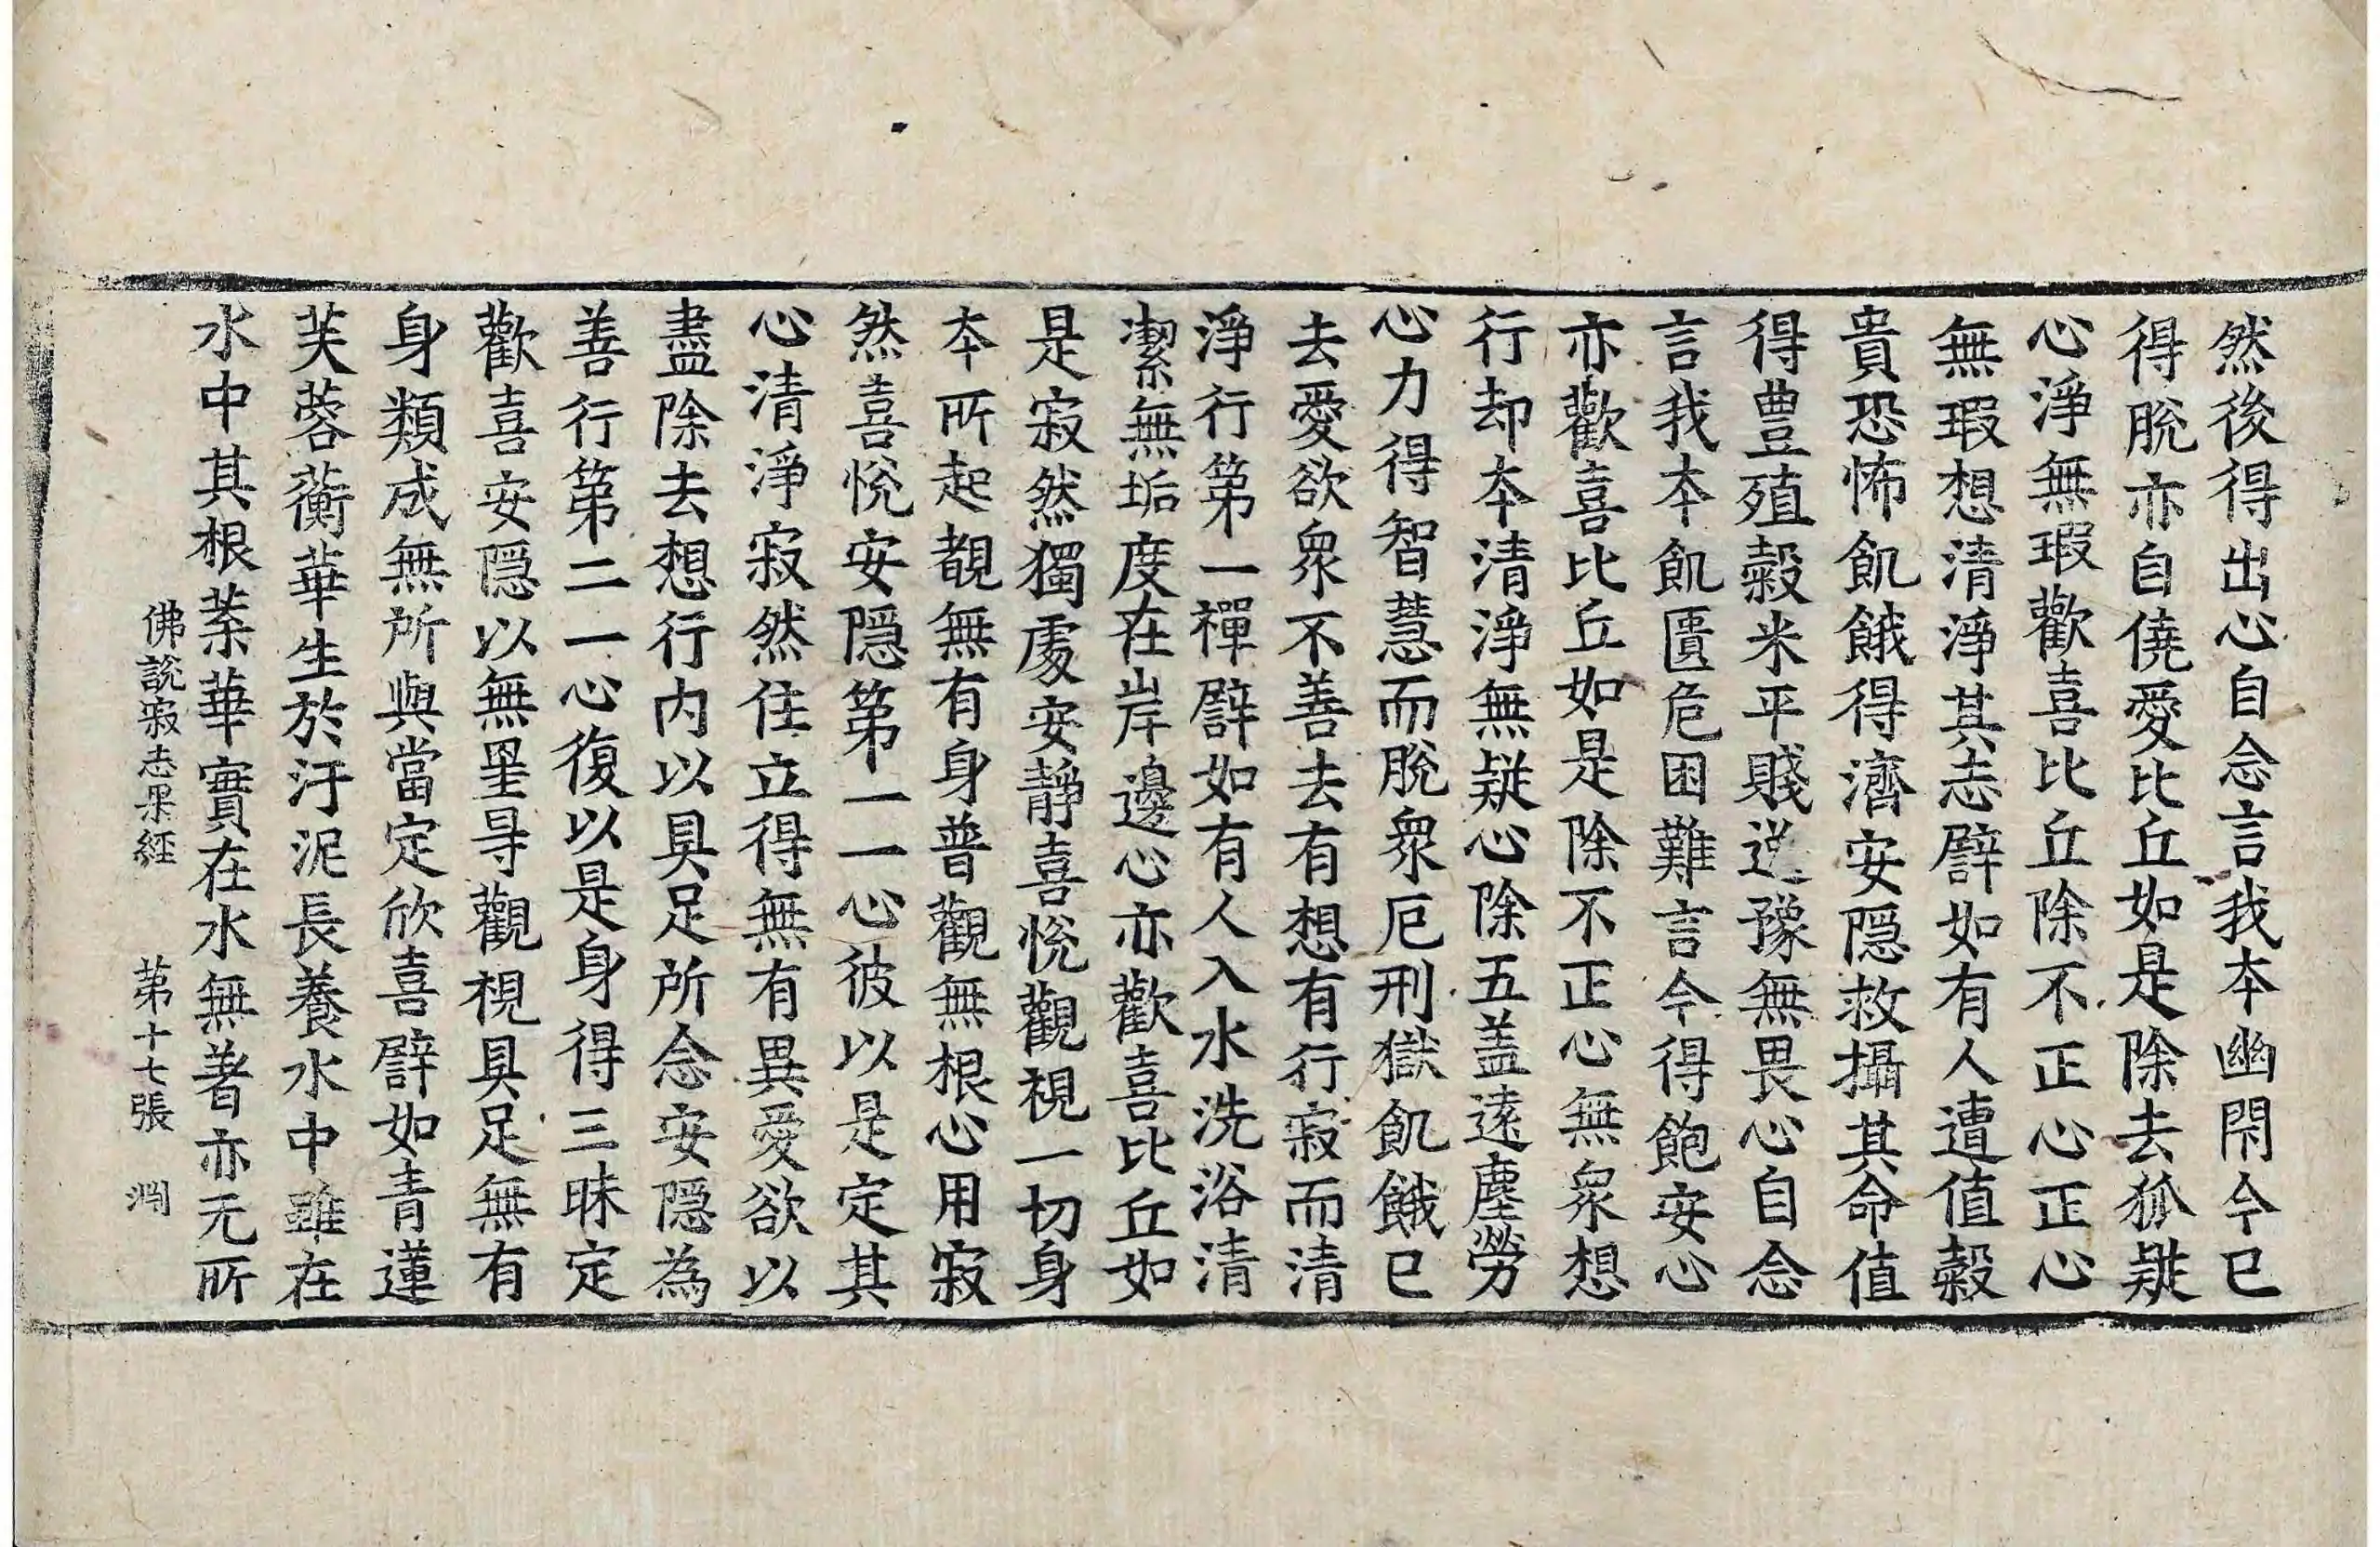 然後得出心自念言我本幽閇今已
得脫亦自僥愛比丘如是除去狐疑
心淨無瑕歡喜比丘除不正心正心
無瑕想清淨其志譬如有人遭值穀
貴恐怖飢餓得濟安隱救攝其命值
得豊殖糓米平賤逸豫無畏心自念
言我本飢匱危困難言今得飽安心
亦歡喜比丘如是除不正心無衆想
行却本清淨無疑心除五盖遠塵勞
心力得智慧而脫衆厄刑獄飢餓已
去愛欲衆不善去有想有行寂而清
淨行第一禪譬如有人入水洗浴清
潔無垢度在岸邊心亦歡喜比丘如
是寂然獨處安靜喜悅觀視一切身
本所起覩無有身普觀無根心用寂
然喜悅安隱第一一心彼以是定其
心清淨寂然住立得無有異愛欲以
盡除去想行内以具足所念安隱為
善行第二一心復以是身得三昧定
歡喜安隱以無罣㝵觀視具足無有
身類成無所與當定欣喜譬如青蓮
芙蓉蘅華生於汙泥長養水中雖在
水中其根葉華實在水無著亦无所
佛說寂志果經 第十七張 渊